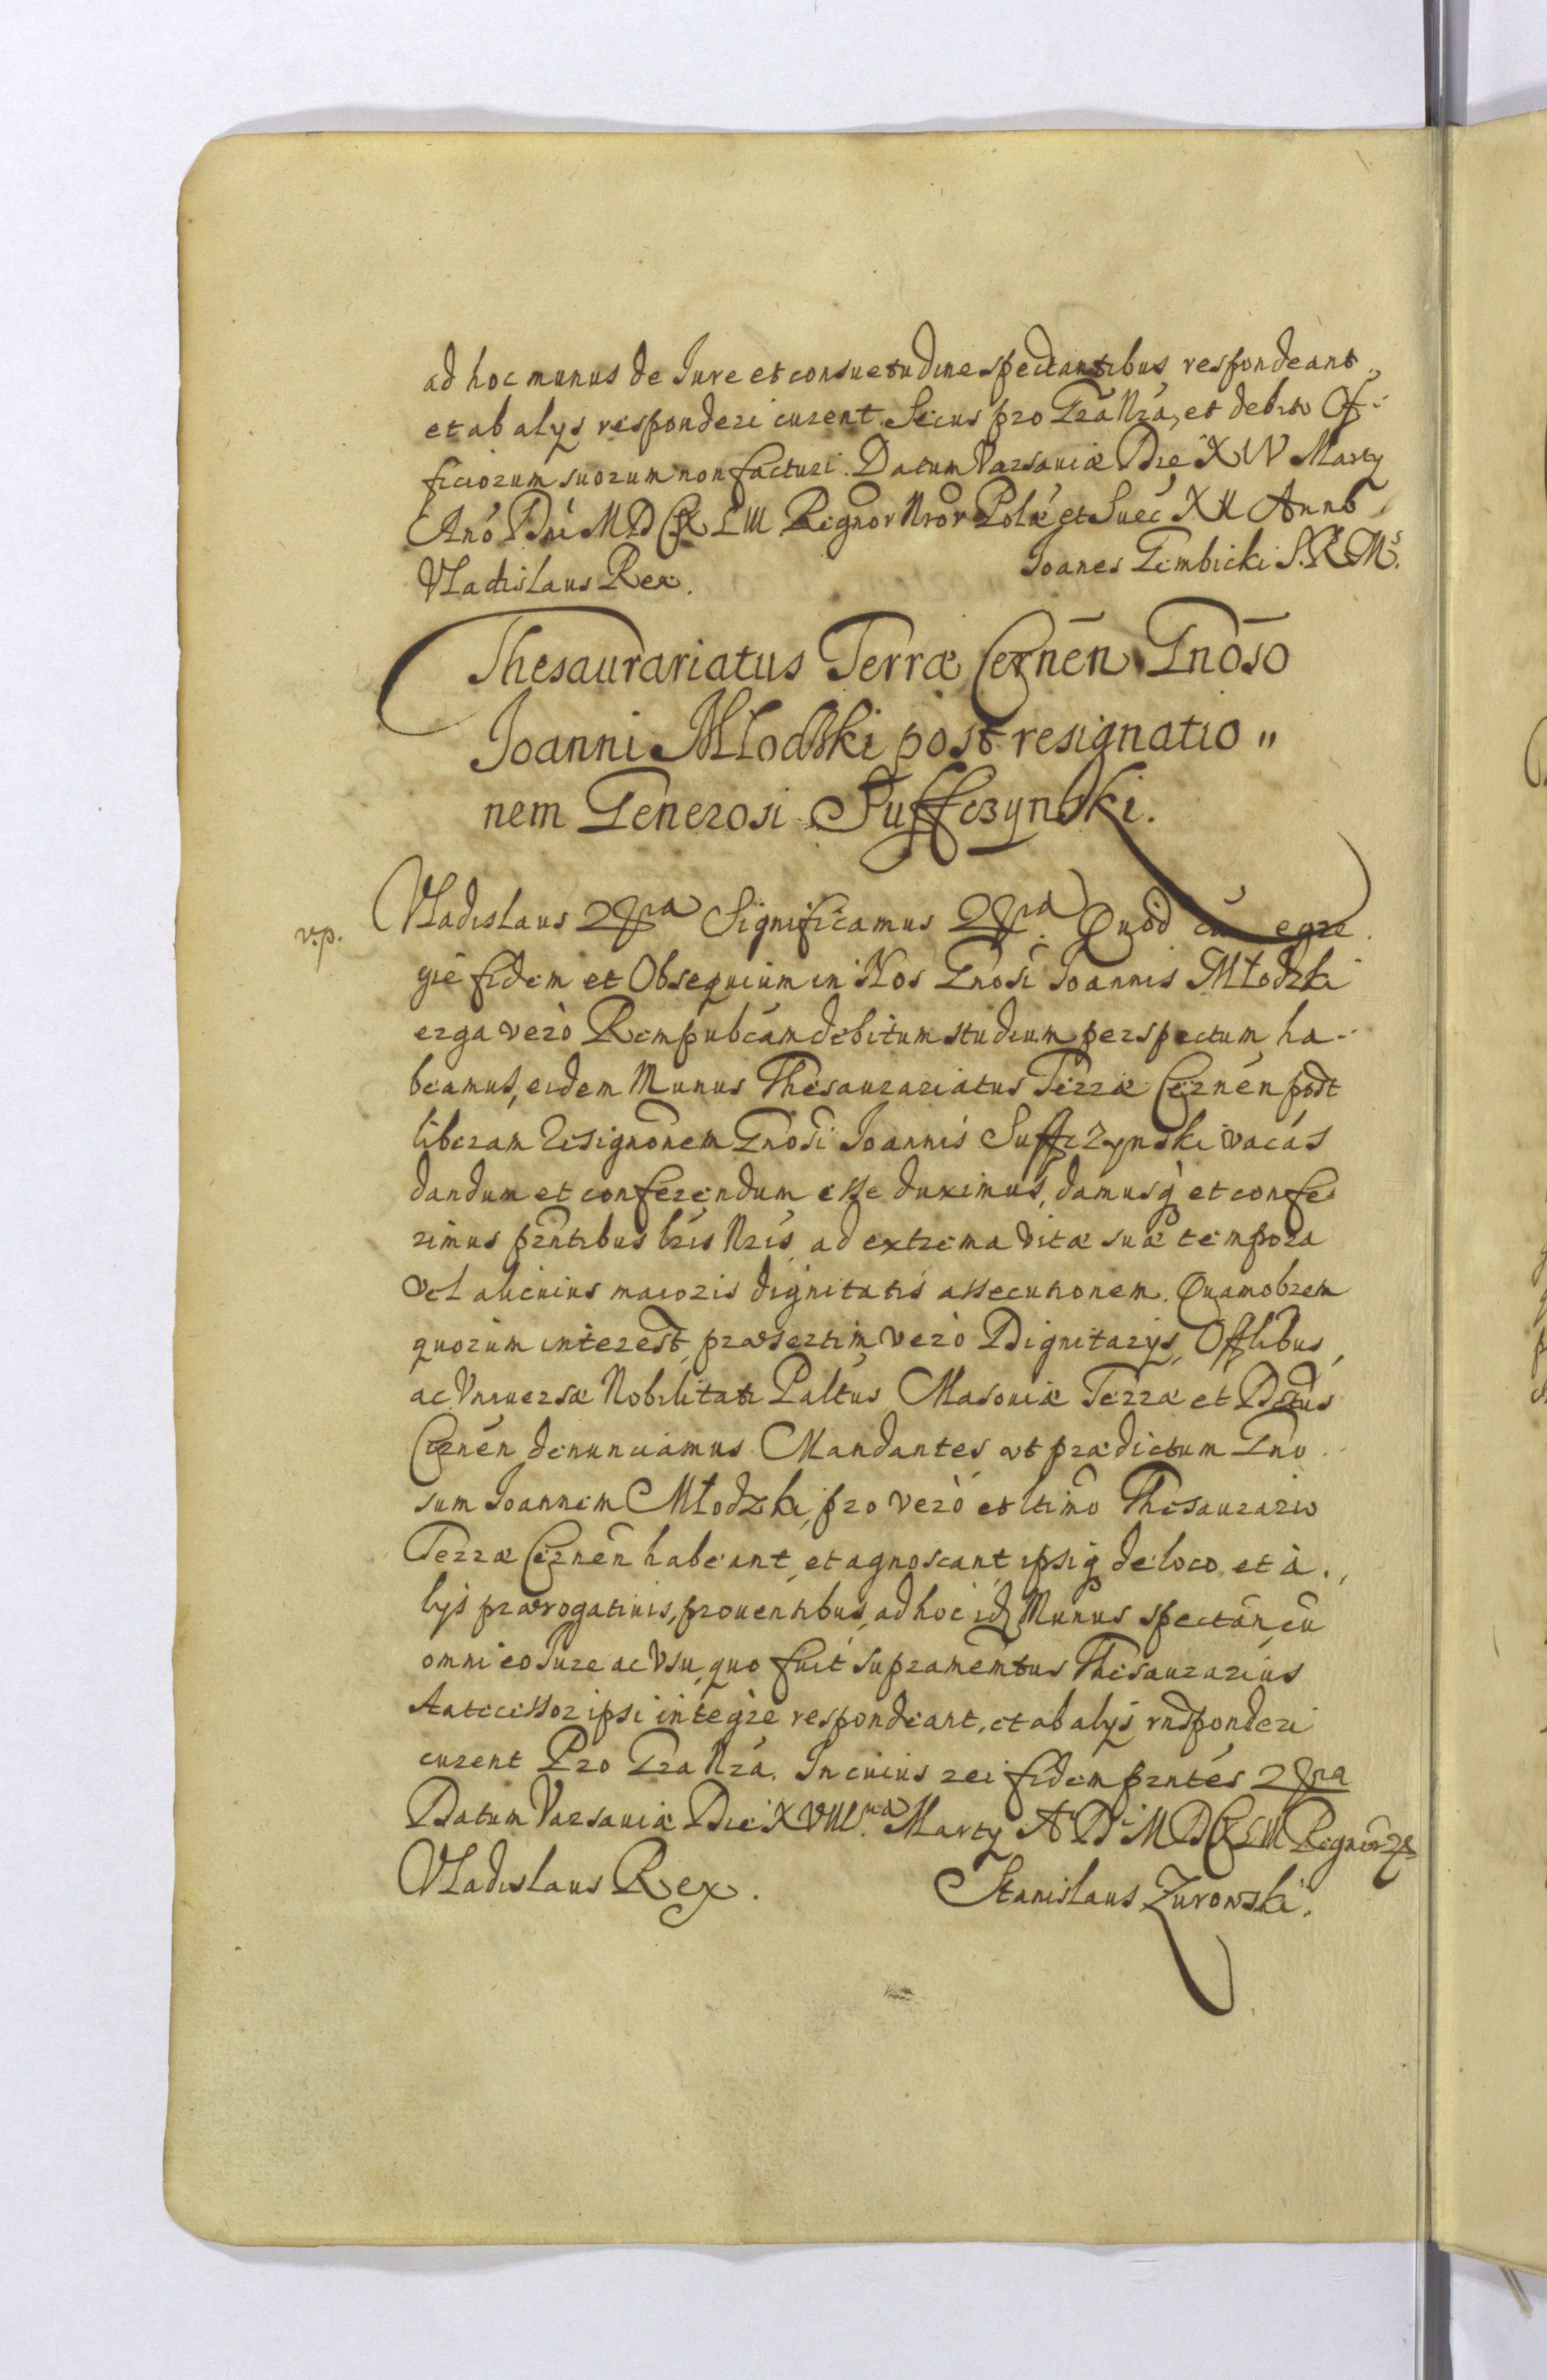 ad hoc munus de Iure et consuetudine spectantibus respondeant,
et ab alys responderi curent. Secus pro Gra͂ Nra͂, et debito Of-
ficiorum suorum non facturi. Datum Varsaviæ Die XIV Marty
Ano͂ Dni͂ MDCXLIII Regnor Nror Polæ͂ et Suec͂ XII Anno
Vladislaus Rex. Ioanes Gembicki S.R.Ms.
Thesaurariatus Terræ Cernēn Gnōso
Joanni Młodzki post resignatio "
nem Generosi Suffczynski.
v.p.
Vladislaus 2ra Significamus 2ra. Quod cu͂ egre
gie fidem et Obsequium in Nos Gnosi͂ Ioannis Młodzki
erga vero Rempubcam debitum studium perspectum ha-
beamus, eidem Munus Thesaurariatus Terræ Cernēn post
liberam Resignonem Gnosi Joannis Suffczynski vacas
dandum et conferendum esse duximus, damusq et confe
rimus pñtibus lris Nris, ad extrema vitæ suæ tempora
vel alicuius maioris dignitatis assecutionem. Quamobrem
quorum interest, præsertim vero Dignitarys, Offlibus,
ac Universæ Nobilitati Paltus Masoviæ Terræ et Dctus
Cernēn denunciamus. Mandantes ut prædictum Gno
sum Joannem Młodzki, pro vero et ltimo Thesaurario
Terræ Cernēn habeant, et agnoscant, ipsiq de loco, et à.,
lys prærogativis, proventibus, ad hoc id Munus spectan͂ cu͂
omni eo Iure ac Usu, quo fuit supramentus Thesaurarius
Antecessor ipsi integre respondeant, et ab alys responderi
curent Pro Gra Nra. In cuius rei fidem pñtes 2ra
Datum Varsaviæ Die XVIII.va Marty A͂ Di͂ MDCXLIII Regnor 2
Vladislaus Rex. Stanislaus Zurowski.